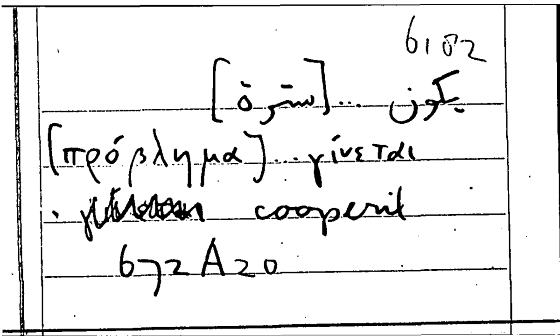 6102
يكون ... [سترة]
[πρόβλημα]... γίνεται
. cooperit
672A20